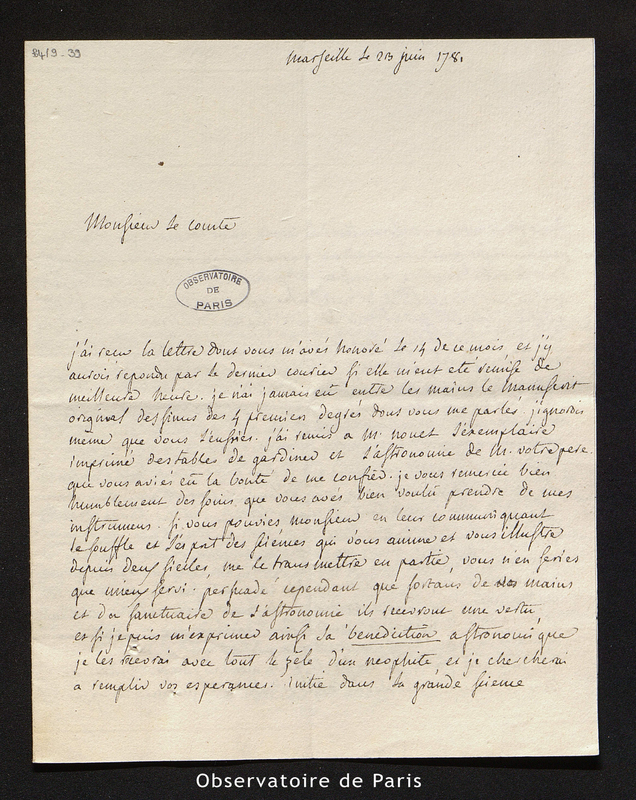 24/9-39
Marseille le 23 juin 1781
Monsieur le comte
OBSERVATOIRE
DE
PARIS
j'ai recu la lettre dont vous m'avés honoré le 14 de ce mois et j'y
aurois repondu par le dernier courier si elle m'eut eté remise de
meilleure heure. je n'ai jamais eu entre les mains le manuscrit
original des sinus des 4 premiers degres dont vous me parlés. j'ignorois
meme que vous l'eussies. j'ai remis a m. nouet l'exemplaire
imprimé des tables de gardiner et l'astronomie de m. votre pere.
que vous aviés eu la bonté de me confier. je vous remercie bien
humblement des soins que vous avés bien voulu prendre de mes
instrumens. si vous pouviés monsieur en leur communiquant
le souffle et l'esprit des siences qui vous anime et vous illustre
depuis deux siecles, me le transmettre en partie, vous n'en seriés
que mieux servi. persuadé cependant que sortans de vos mains
et du sanctuaire de l'astronomie ils recevront une vertu
et si je puis m'exprimer ainsi la benediction astronomique
je les recevrai avec tout le zele d'un neophite et je chercherai
a remplir vos esperances. initié dans la grande sience
Observatoire de Paris